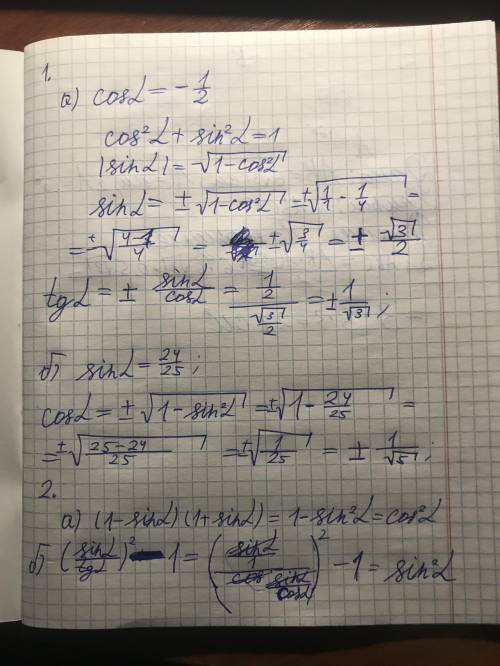 1.
а) cosα = - 1/2
cos²α + sin²α = 1
|sinα| = √(1-cos²α)
sinα = ± √(1-cos²α) = ±√(1/1 - 1/4) =
= ±√((4-1)/4) = ±√(3/4) = ± √3/2
tgα = ± sinα/cosα = (1/2)/(√3/2) = ± 1/√3;
б) sinα = 24/25;
cosα = ± √(1-sin²α) = ±√(1 - 24/25) =
= ±√((25-24)/25) = ±√(1/25) = ± 1/√5;
2.
а) (1-sinα)(1+sinα) = 1-sin²α = cos²α
б) (sinα/tgα)² - 1 = (sinα/(sinα/cosα))² - 1 = sin²α